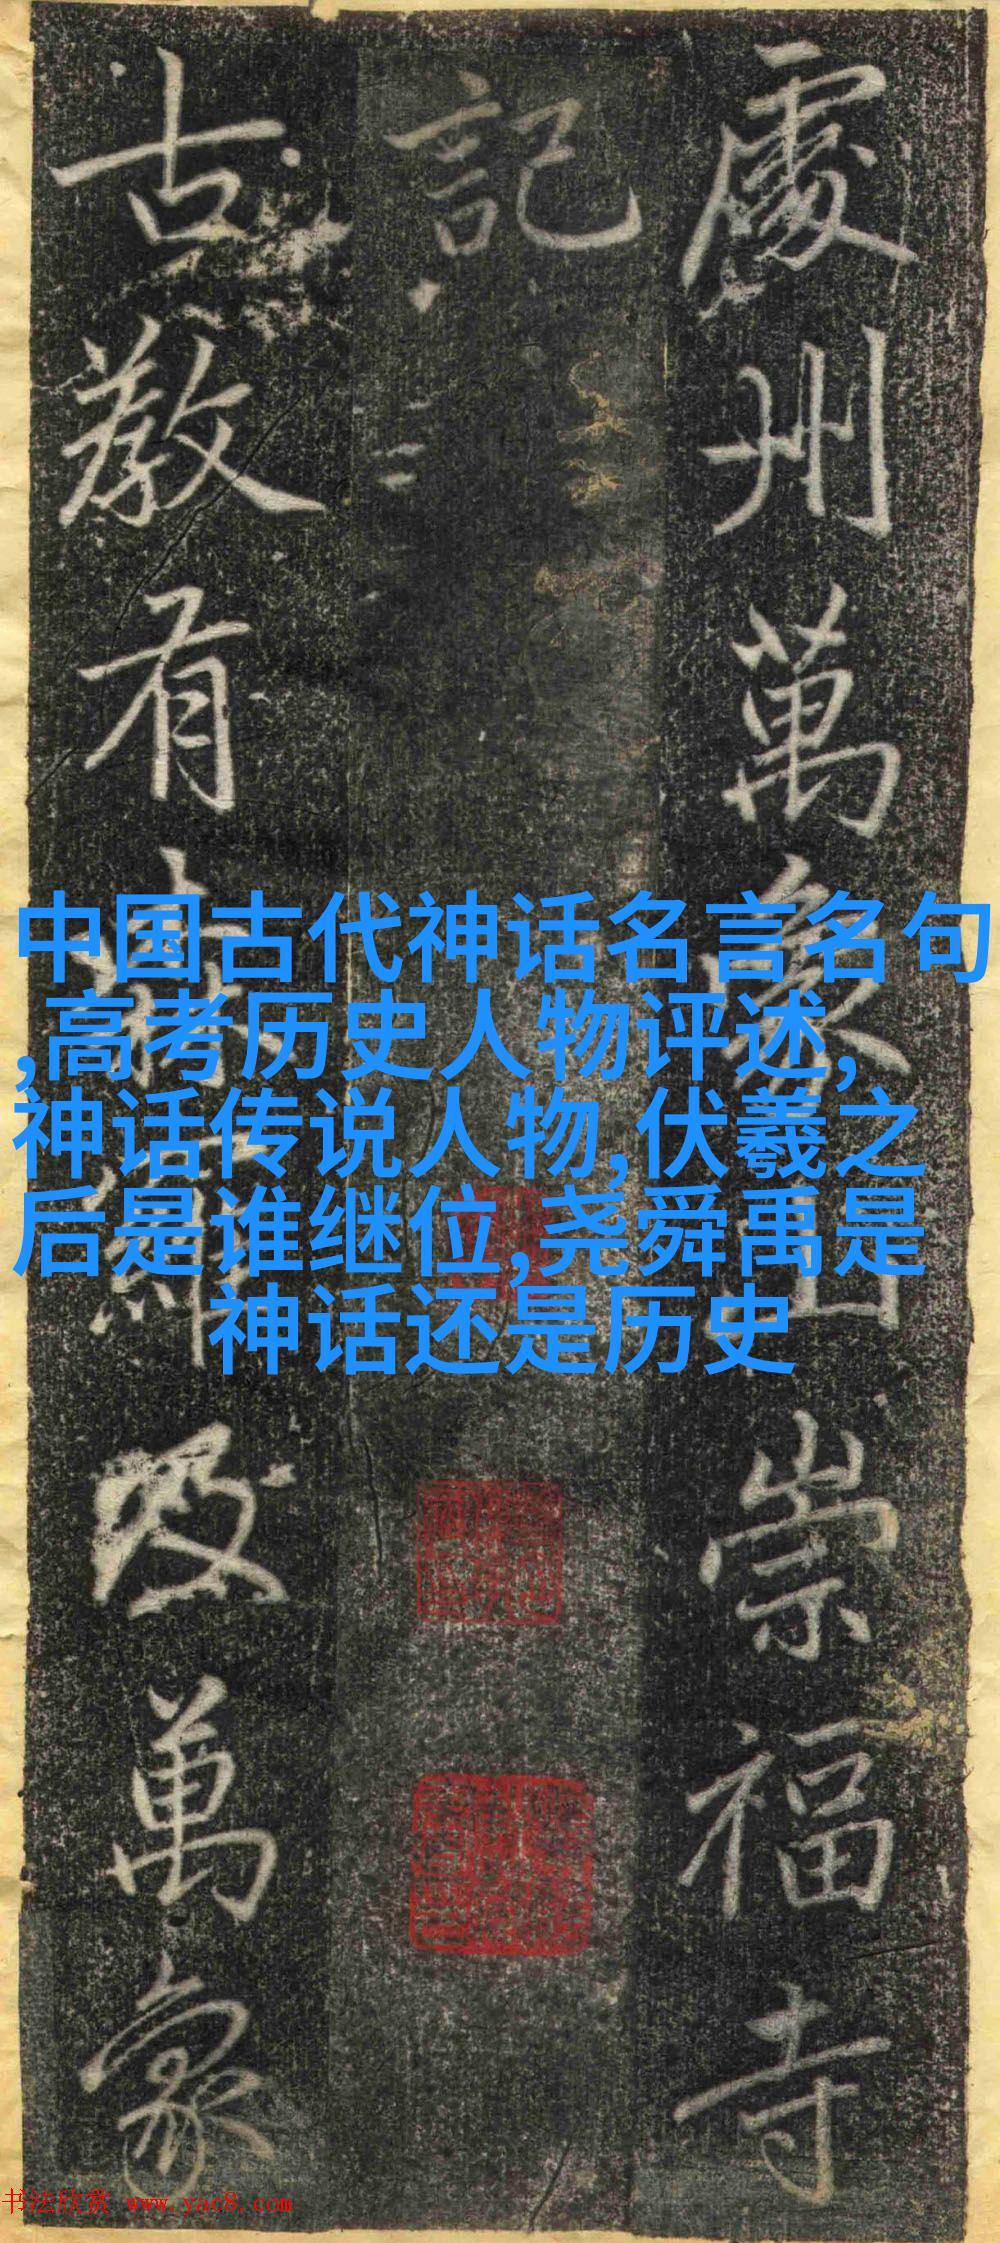 處州萬象山崇福寺
記
古教有森羅及萬象
中国古代神话名言名句
,高考历史人物评述,
神话传说人物,伏羲之
后是谁继位,尧舜禹是
神话还是历史
书法欣赏 www.yac8.com